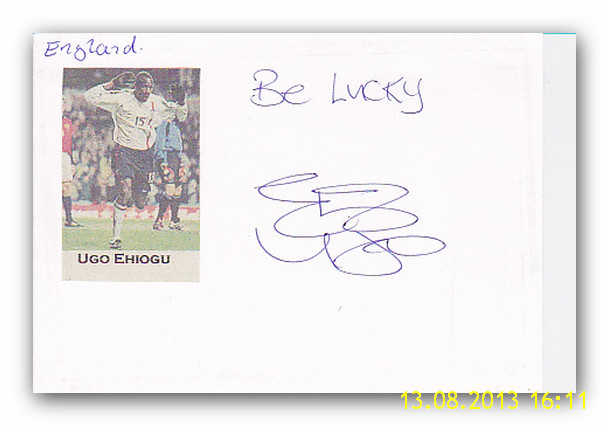 England.
Be Lucky
15
Ugo Ehiogu
13.08.2013 16:11